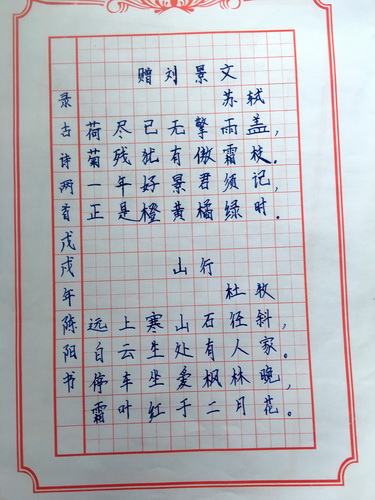 赠刘景文
苏轼
荷尽已无擎雨盖，
菊残犹有傲霜枝。
一年好景君须记，
正是橙黄橘绿时。
山行
杜牧
远上寒山石径斜，
白云生处有人家。
停车坐爱枫林晚，
霜叶红于二月花。
录古诗两首戊戌年陈阳书